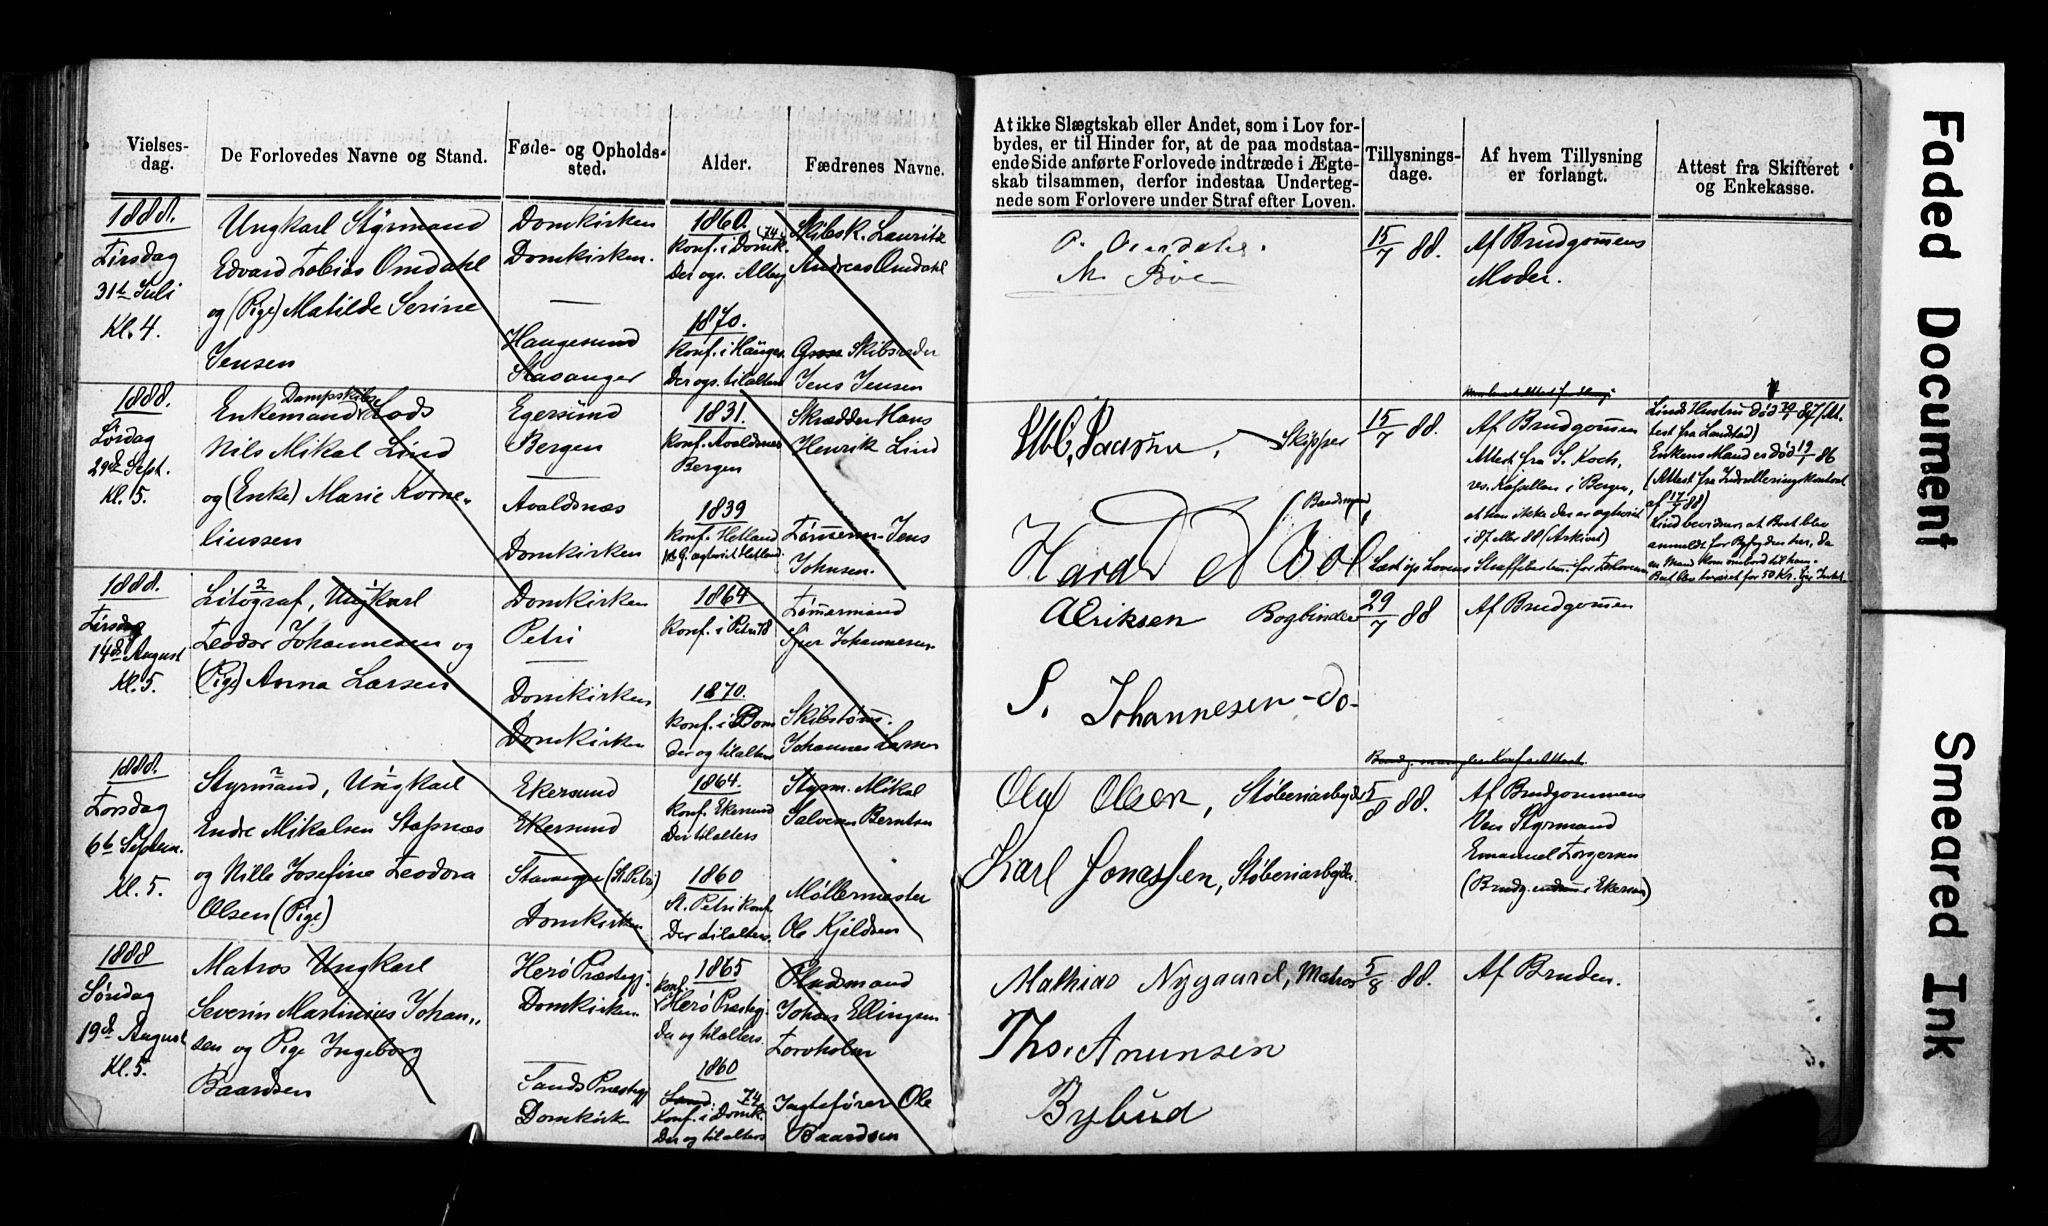 Vielses-
dag.
De Forlovedes Navne og Stand.
Føde- og Opholds-
sted.
Alder.
Fædrenes Navne.
1888.
Tirsdag
31te Juli
Kl. 4.
Ungkarl Styrmand
Edvard Tobias Omdahl
og (Pige) Matilde Serine
Jensen
Domkirken
Domkirken.
Haugesund
Stavanger
1860.
Konf. i Domk. (74)
Der ogs.
1870.
Konf. i Hauges.
Der ogs. tilalters
Skibsk. Lauritz
Andreas Omdahl
Skibsreder
Jens Jensen
1888.
Lørdag
29de Sept.
Kl. 5.
Dampskibs
Enkemand Lods
Nils Mikal Lind
og (Enke) Marie Korne-
liussen
Egersund
Bergen
Avaldsnæs
Domkirken
1831.
Konf. Avaldsnæs
Bergen
1839
Konf. Hetland
Skrædder Hans
Henrik Lind
Tømmerm. Jens
Johnsen.
1888.
Tirsdag
14de August
Kl. 5.
Litograf, Ungkarl
Teodor Johannesen og
(Pige) Anna Larsen
Domkirken
Petri
Domkirken
Domkirken
1864
Konf. i Petri
1870.
Konf. i Dom
Der og tilalters
Tømmermand
Johannesen
Skibstøm.
Johannes Larsen
1888.
Torsdag
6te Septem.
Kl. 5.
Styrmand, Ungkarl
Endre Mikalsen Stapnæs
og Nille Josefine Teodora
Olsen (Pige)
Ekersund
Ekersund
Stavanger (St. Petri)
Domkirken
1864.
Konf. Ekersund
Der tilalters
1860
St. Petri Konf.
Der tilalters.
Styrm. Mikal
Salvesen Berntsen
Møllermester
Ole Kjeldsen
1888
Søndag
19de August
Kl. 5.
Matros Ungkarl
Severin Martinius Johan-
sen og Pige Ingeborg
Baardsen
Herø Præstegj.
Domkirken
Sands Præstegj
Domkirk
1865
Konf.
Herø Præstegj.
Der og tilalters.
1860
Sand. 74
Konf. i Domk.
Der og tilalters
Pladsmand
Johans Ellingsen
Torvholm
Jagtefører Ole
Baardsen
At ikke Slægtskab eller Andet, som i Lov for-
bydes, er til Hinder for, at de paa modstaa-
ende Side anførte Forlovede indtræde i Ægte-
skab tilsammen, derfor indestaa Underteg-
nede som Forlovere under Straf efter Loven.
Tillysnings-
dage.
Af hvem Tillysning
er forlangt.
Attest fra Skifteret
og Enkekasse.
O. Omdahl.
M. Bøe
15/7 88.
Af Brudgommens
Moder.
Skipper
15/7 88.
Af Brudgommen
Attest fra S. Koch,
res. Kapellan i Bergen,
at han ikke der er agtevict
i 87 eller 88 (Arkivet)
Linds Hustru død 87 (At-
test fra Landstad)
Enkens Mand er død 19/1 86
(Attest fra Indrulleringskontoret
af 17/7 88)
Lind bevidner, at Bert blev
anmeldt for
Harald
Læst op Lovens Straffebestem. for Forloverne
A Eriksen Bogbinder
29/7 88
Af Brudgommen
S. Johannesen - do -
Brudg. mangler Konf. Attest.
Olaf Olsen, Støberiarbejder
5/8 88.
Af Brudgommens
Ven Styrmand
Emanuel Torgersen
(Brudg. i Ekersun)
Karl Jonassen, Støberiarbejder
Mathias Nygaard, Matros
5/8 88.
Af Bruden.
Ths. Amunsen
Bybud
Faded Document
Smeared Ink